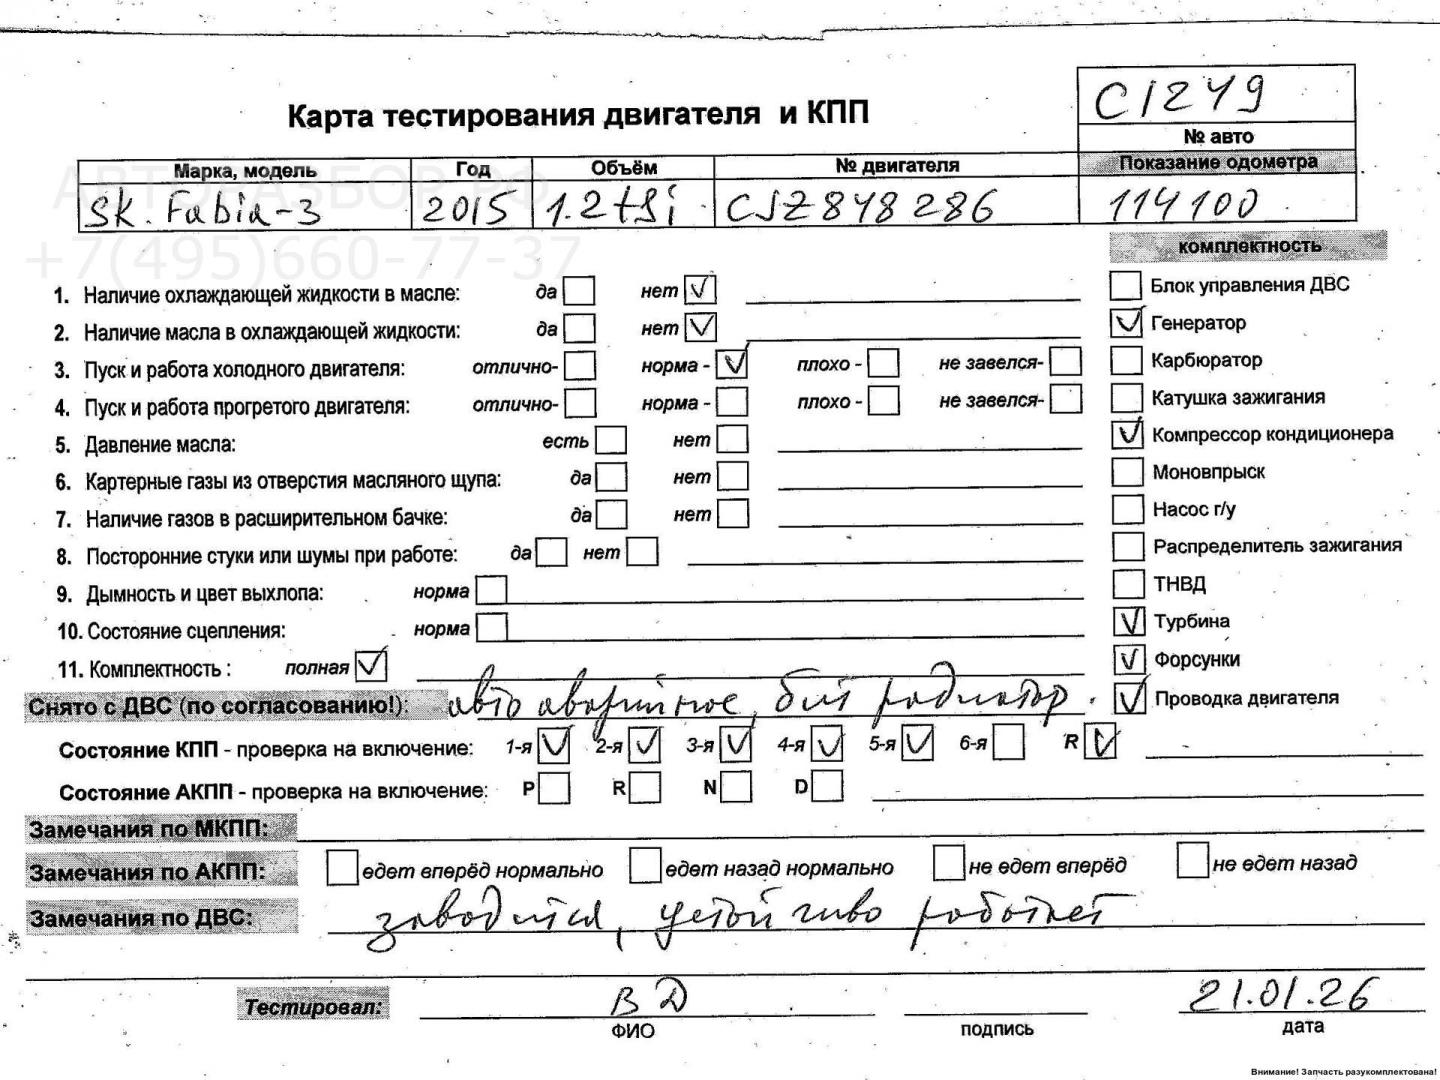 С1249
Карта тестирования двигателя и КПП
№ авто
Марка, модель Год Объём № двигателя Показание одометра
АВТОРАЗБОР.РФ
Sk. Fabia-3 2015 1.2 tsi CJZ848286 114100
+7(495)660-77-37
комплектность
1. Наличие охлаждающей жидкости в масле: да нет Блок управления ДВС
2. Наличие масла в охлаждающей жидкости: да нет Генератор
3. Пуск и работа холодного двигателя: отлично- норма - плохо - не завелся- Карбюратор
4. Пуск и работа прогретого двигателя: отлично- норма - плохо - не завелся- Катушка зажигания
5. Давление масла: есть нет Компрессор кондиционера
6. Картерные газы из отверстия масляного щупа: да нет Моновпрыск
7. Наличие газов в расширительном бачке: да нет Насос г/у
8. Посторонние стуки или шумы при работе: да нет Распределитель зажигания
9. Дымность и цвет выхлопа: норма ТНВД
10. Состояние сцепления: норма Турбина
11. Комплектность : полная Форсунки
Снято с ДВС (по согласованию!): авто аварийное, бит радиатор. Проводка двигателя
Состояние КПП - проверка на включение: 1-я 2-я 3-я 4-я 5-я 6-я R
Состояние АКПП - проверка на включение: P R N D
Замечания по МКПП:
Замечания по АКПП: едет вперёд нормально едет назад нормально не едет вперёд не едет назад
Замечания по ДВС: заводится, устойчиво работает
Тестировал: ВД 21.01.26
ФИО подпись дата
Внимание! Запчасть разукомплектована!